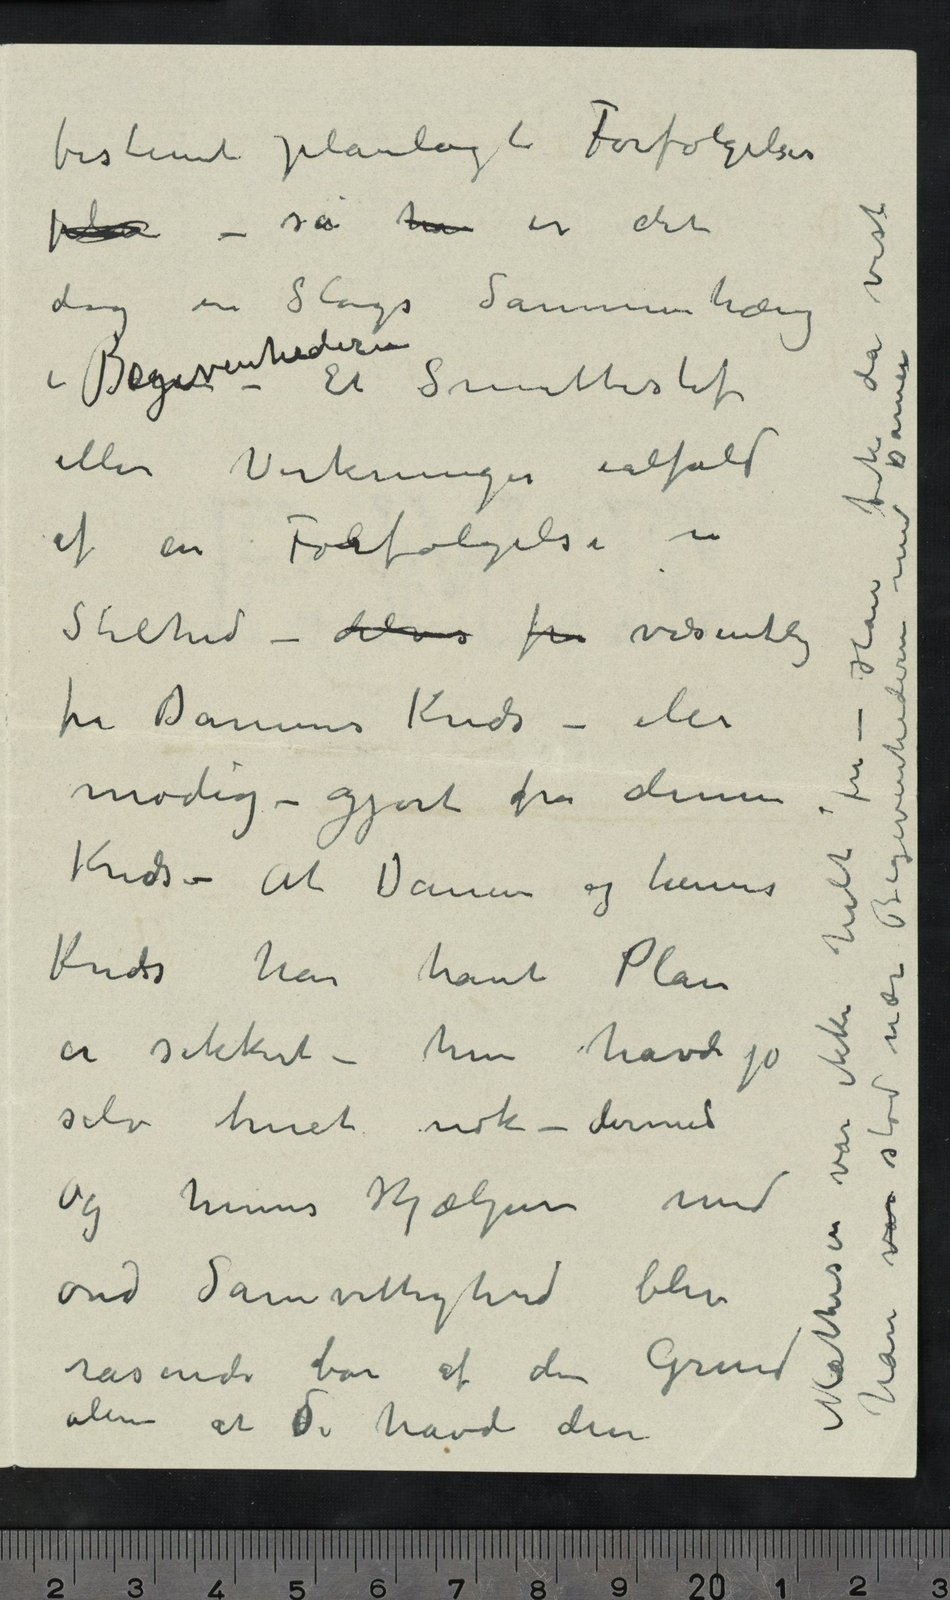 bestemt planlagt Forfølgelses
pla – så ha er det
dog en Slags Sammenhæng
i Begivenhederne – Et Smittestof
eller Virkninger ialfald
af en Forfølgelse i
Stilhed – delvis fra væsentlig
fra Damens Kreds – eller
modig – gjort fra denne
Kreds – At Damen og hennes
Kreds har havt Plan
er sikkert – hun havde jo
selv truet nok – dermed
og hennes Hjælpere med
ond Samvittighed blev
rasende bar af den Grund
alene at De havde den
Mathisen var ikke helt fri – Han fik da vist
han var stod nær Begivenhederne med Damen